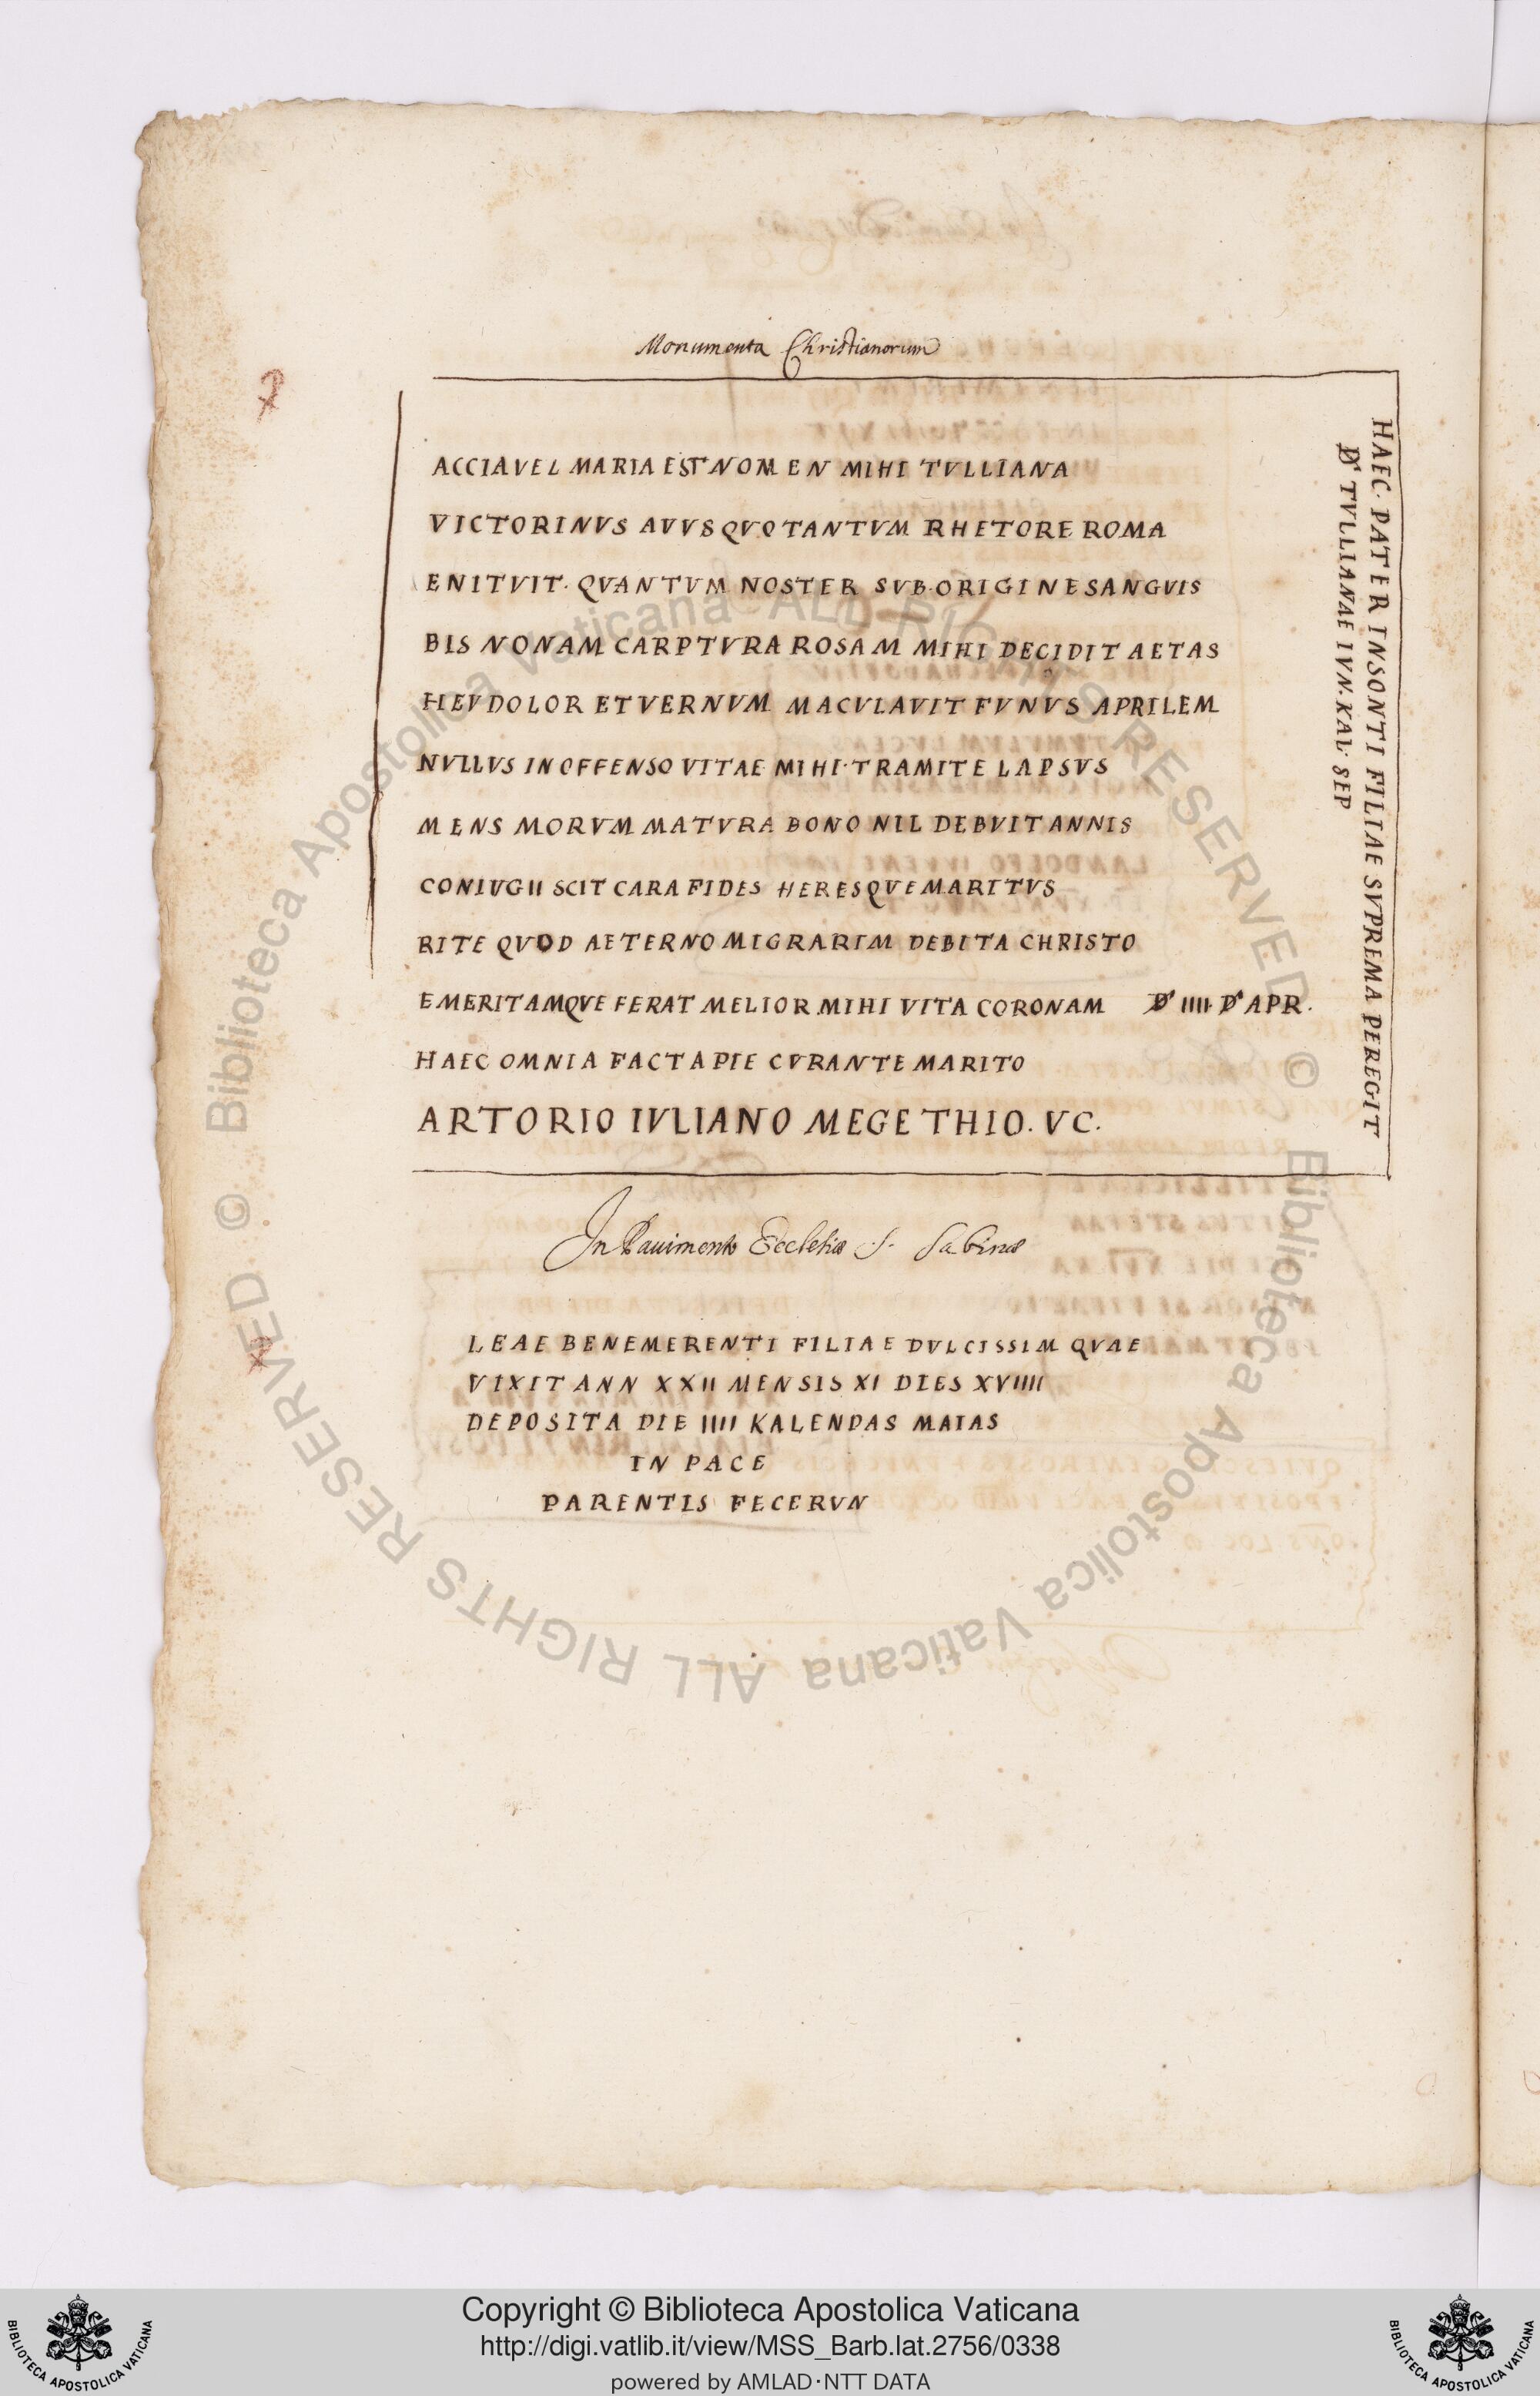 Monumenta Christianorum
ACCIA VEL MARIA EST NOMEN MIHI TVLLIANA
VICTORINVS AVVS QVO TANTVM RHETORE ROMA
ENITVIT. QVANTVM NOSTER SVB. ORIGINE SANGVIS
BIS NONAM CARPTVRA ROSAM MIHI DECIDIT AETAS
HEV DOLOR ET VERNVM MACVLAVIT FVNVS APRILEM
NVLLVS INOFFENSO VITAE MIHI. TRAMITE LAPSVS
MENS MORVM MATVRA BONO NIL DEBVIT ANNIS
CONIVGII SCIT CARA FIDES HERESQVE MARITVS
RITE QVOD AETERNO MIGRARIM DEBITA CHRISTO
EMERITAMQVE FERAT MELIOR MIHI VITA CORONAM D IIII. D APR.
HAEC OMNIA FACTA PIE CVRANTE MARITO
ARTORIO IVLIANO MEGETHIO. VC.
HAEC. PATER INSONTI FILIAE SVPREMA PEREGIT
D TVLLIANAE IVN. KAL. SEP
In Pauimento Ecclesiæ S. Sabinæ
LEAE BENEMERENTI FILIAE DVLCISSIM QVAE
VIXIT ANN XXII MENSIS XI DIES XVIIII
DEPOSITA DIE IIII KALENDAS MAIAS
IN PACE
PARENTIS FECERVN
© Biblioteca Apostolica Vaticana ALL RIGHTS RESERVED © Biblioteca Apostolica Vaticana ALL RIGHTS RESERVED
Copyright © Biblioteca Apostolica Vaticana
http://digi.vatlib.it/view/MSS_Barb.lat.2756/0338
powered by AMLAD·NTT DATA
BIBLIOTECA APOSTOLICA VATICANA
BIBLIOTECA APOSTOLICA VATICANA